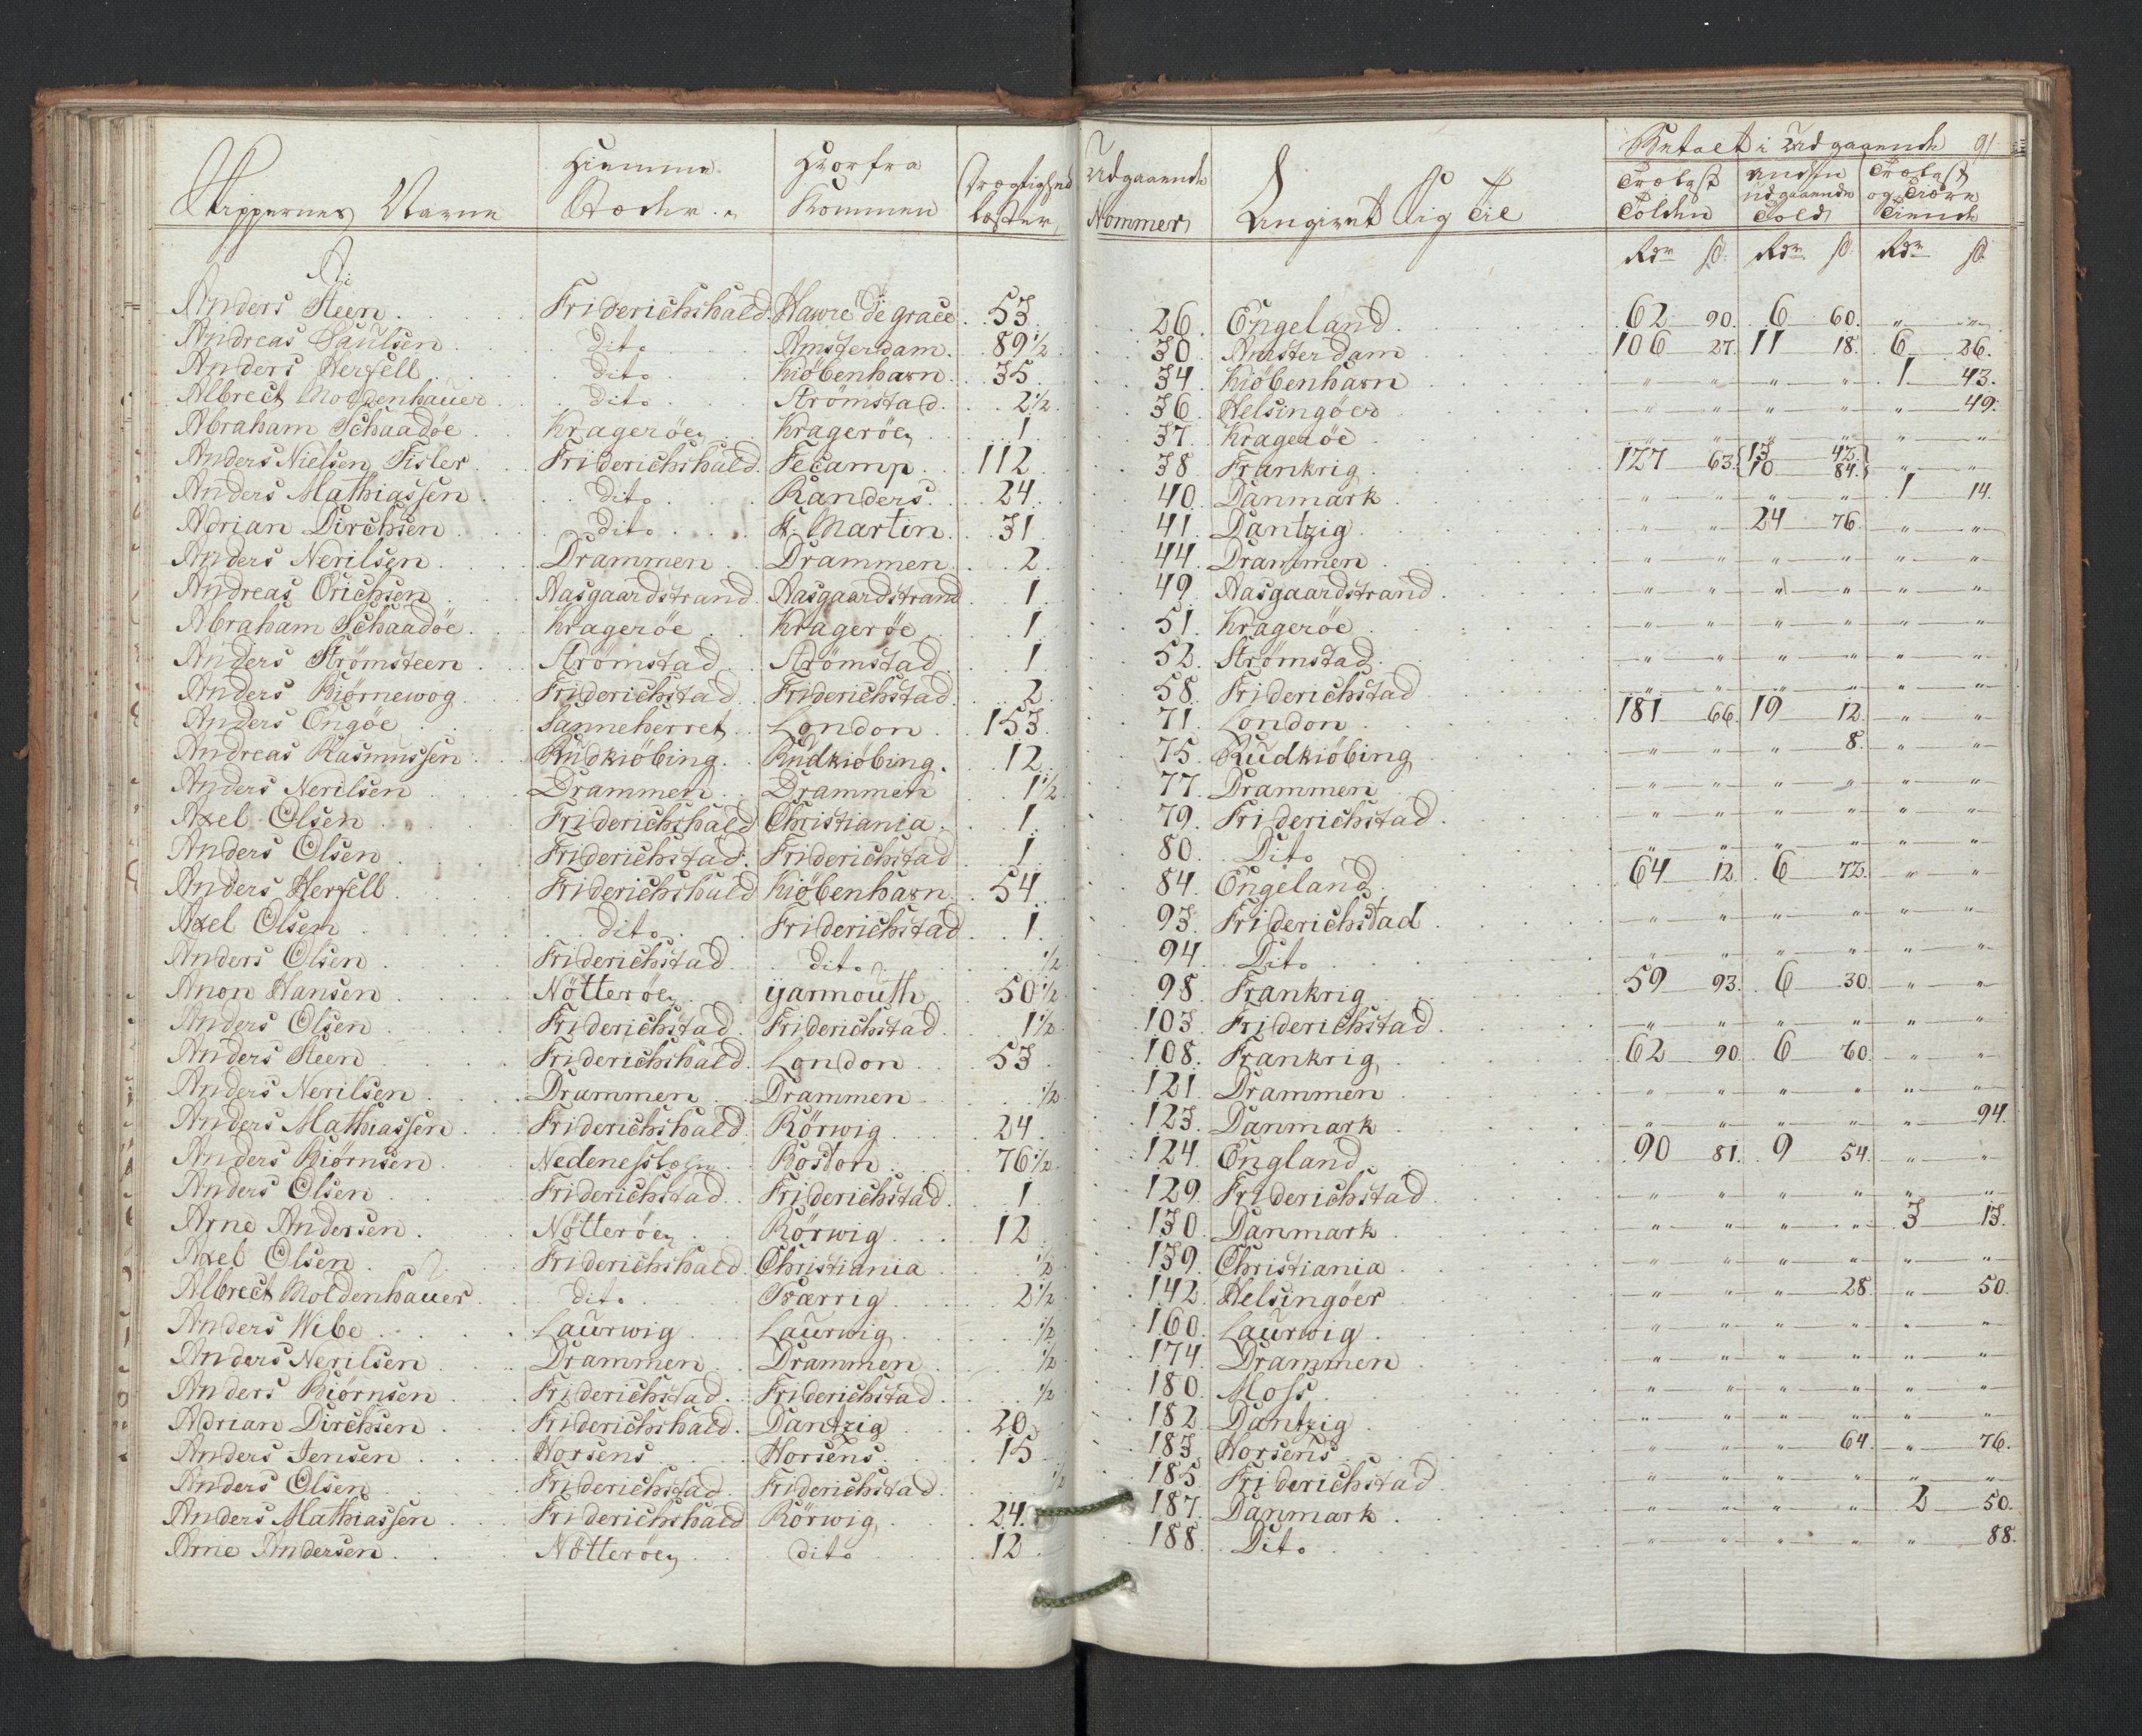 Skippernes Navne | Hiemme Stæder | Hvorfra Kommen | Drægtighed læster | Udgaaende Nommer | Angivet sig til | Betalt i Udgaaende 91
Trælast Tolden | anden udgaaende Told | Trælast og Tiære Tiende
Rdr ß. | Rdr ß. | Rdr ß.
A:
Anders Steen | Friderichshald | Hawre de grace | 53 | 26. | Engeland | 62 90. | 6 60. | " "
Andreas Paulsen | dito | Amsterdam | 89 1/2 | 30. | Amsterdam | 106 27. | 11 18. | 6 26.
Anders Herfell | dito | Kiöbenhavn | 35 | 34. | Kiöbenhavn | " " | " " | 1 43.
Albrect Moldenhauer | dito | Strömstad | 2 1/2 | 36. | Helsingöer | " " | " " | " 49.
Abraham Schaadöe | Krageröe | Krageröe | 1 | 37. | Krageröe | " " | " " | " "
Anders Nielsen Fisler | Friderichshald | Fecamp | 112 | 38. | Frankrig | 127 63. | 13 42. 10 84. | " "
Anders Mathiassen | dito | Randers | 24 | 40. | Danmark | " " | " " | 1 14.
Adrian Dirchsen | dito | St. Martin | 31 | 41. | Dantzig | " " | 24 76. | " "
Anders Nerilsen | Drammen | Drammen | 2 | 44. | Drammen | " " | " " | " "
Andreas Erichsen | Aasgaardstrand | Aasgaardstrand | 1 | 49. | Aasgaardstrand | " " | " " | " "
Abraham Schaadöe | Krageröe | Krageröe | 1 | 51. | Krageröe | " " | " " | " "
Anders Strömsteen | Strömstad | Strömstad | 1 | 52. | Strömstad | " " | " " | " "
Anders Biörnewog | Friderichstad | Friderichstad | 2 | 58. | Friderichstad | " " | " " | " "
Anders Engöe | Sanneherret | London | 153 | 71. | London | 181 66. | 19 12. | " "
Andreas Rasmussen | Rudkiöbing | Rudkiöbing | 12 | 75. | Rudkiöbing | " " | " 8. | " "
Anders Nerilsen | Drammen | Drammen | 1 1/2 | 77. | Drammen | " " | " " | " "
Axel Olsen | Friderichshald | Christiania | 1 | 79. | Friderichstad | " " | " " | " "
Anders Olsen | Friderichstad | Friderichstad | 1 | 80. | Dito | " " | " " | " "
Anders Herfell | Friderichshald | Kiöbenhavn | 54 | 84. | Engeland | 64 12. | 6 72. | " "
Axel Olsen | dito | Friderichstad | 1 | 93. | Friderichstad | " " | " " | " "
Anders Olsen | Friderichstad | dito | 1/2 | 94. | Dito | " " | " " | " "
Anon Hansen | Nötteröe | yarmouth | 50 1/2 | 98. | Frankrig | 59 93. | 6 30. | " "
Anders Olsen | Friderichstad | Friderichstad | 1 1/2 | 103. | Friderichstad | " " | " " | " "
Anders Steen | Friderichshald | London | 53 | 108. | Frankrig | 62 90. | 6 60. | " "
Anders Nerilsen | Drammen | Drammen | 1/2 | 121. | Drammen | " " | " " | " "
Anders Mathiassen | Friderichshald | Rörwig | 24 | 123. | Danmark | " " | " " | " 94.
Anders Biörnsen | Nedenesslehn | Boston | 76 1/2 | 124. | England | 90 81. | 9 54. | " "
Anders Olsen | Friderichstad | Friderichstad | 1 | 129. | Friderichstad | " " | " " | " "
Arne Andersen | Nötteröe | Rörwig | 12 | 130. | Danmark | " " | " " | 3 13.
Axel Olsen | Friderichshald | Christiania | 1/2 | 139. | Christiania | " " | " " | " "
Albrect Moldenhauer | dito | Sværrig | 2 1/2 | 142. | Helsingöer | " " | " 28. | " 50.
Anders Wibe | Laurwig | Laurwig | 1/2 | 160. | Laurwig | " " | " " | " "
Anders Nerilsen | Drammen | Drammen | 1/2 | 174. | Drammen | " " | " " | " "
Anders Biörnsen | Friderichstad | Friderichstad | 1/2 | 180. | Moss | " " | " " | " "
Adrian Dirchsen | Friderichshald | Dantzig | 20 | 182. | Dantzig | " " | " " | " "
Anders Jensen | Horsens | Horsens | 15 | 183. | Horsens | " " | " 64. | " 76.
Anders Olsen | Friderichstad | Friderichstad | 1/2 | 185. | Friderichstad | " " | " " | " "
Anders Mathiassen | Friderichshald | Rörwig | 24. | 187. | Danmark | " " | " " | 2 50.
Arne Andersen | Nötteröe | dito | 12 | 188. | Dito | " " | " " | " 88.